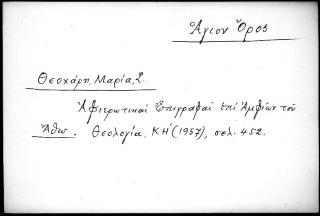 Ἅγιον Ὄρος
Θεοχάρη, Μαρία, Σ.
Ἀφιερωτικαὶ Ἐπιγραφαὶ ἐπὶ Ἀμφίων τοῦ
Ἄθω. Θεολογία, ΚΗ' (1957), σελ. 452.